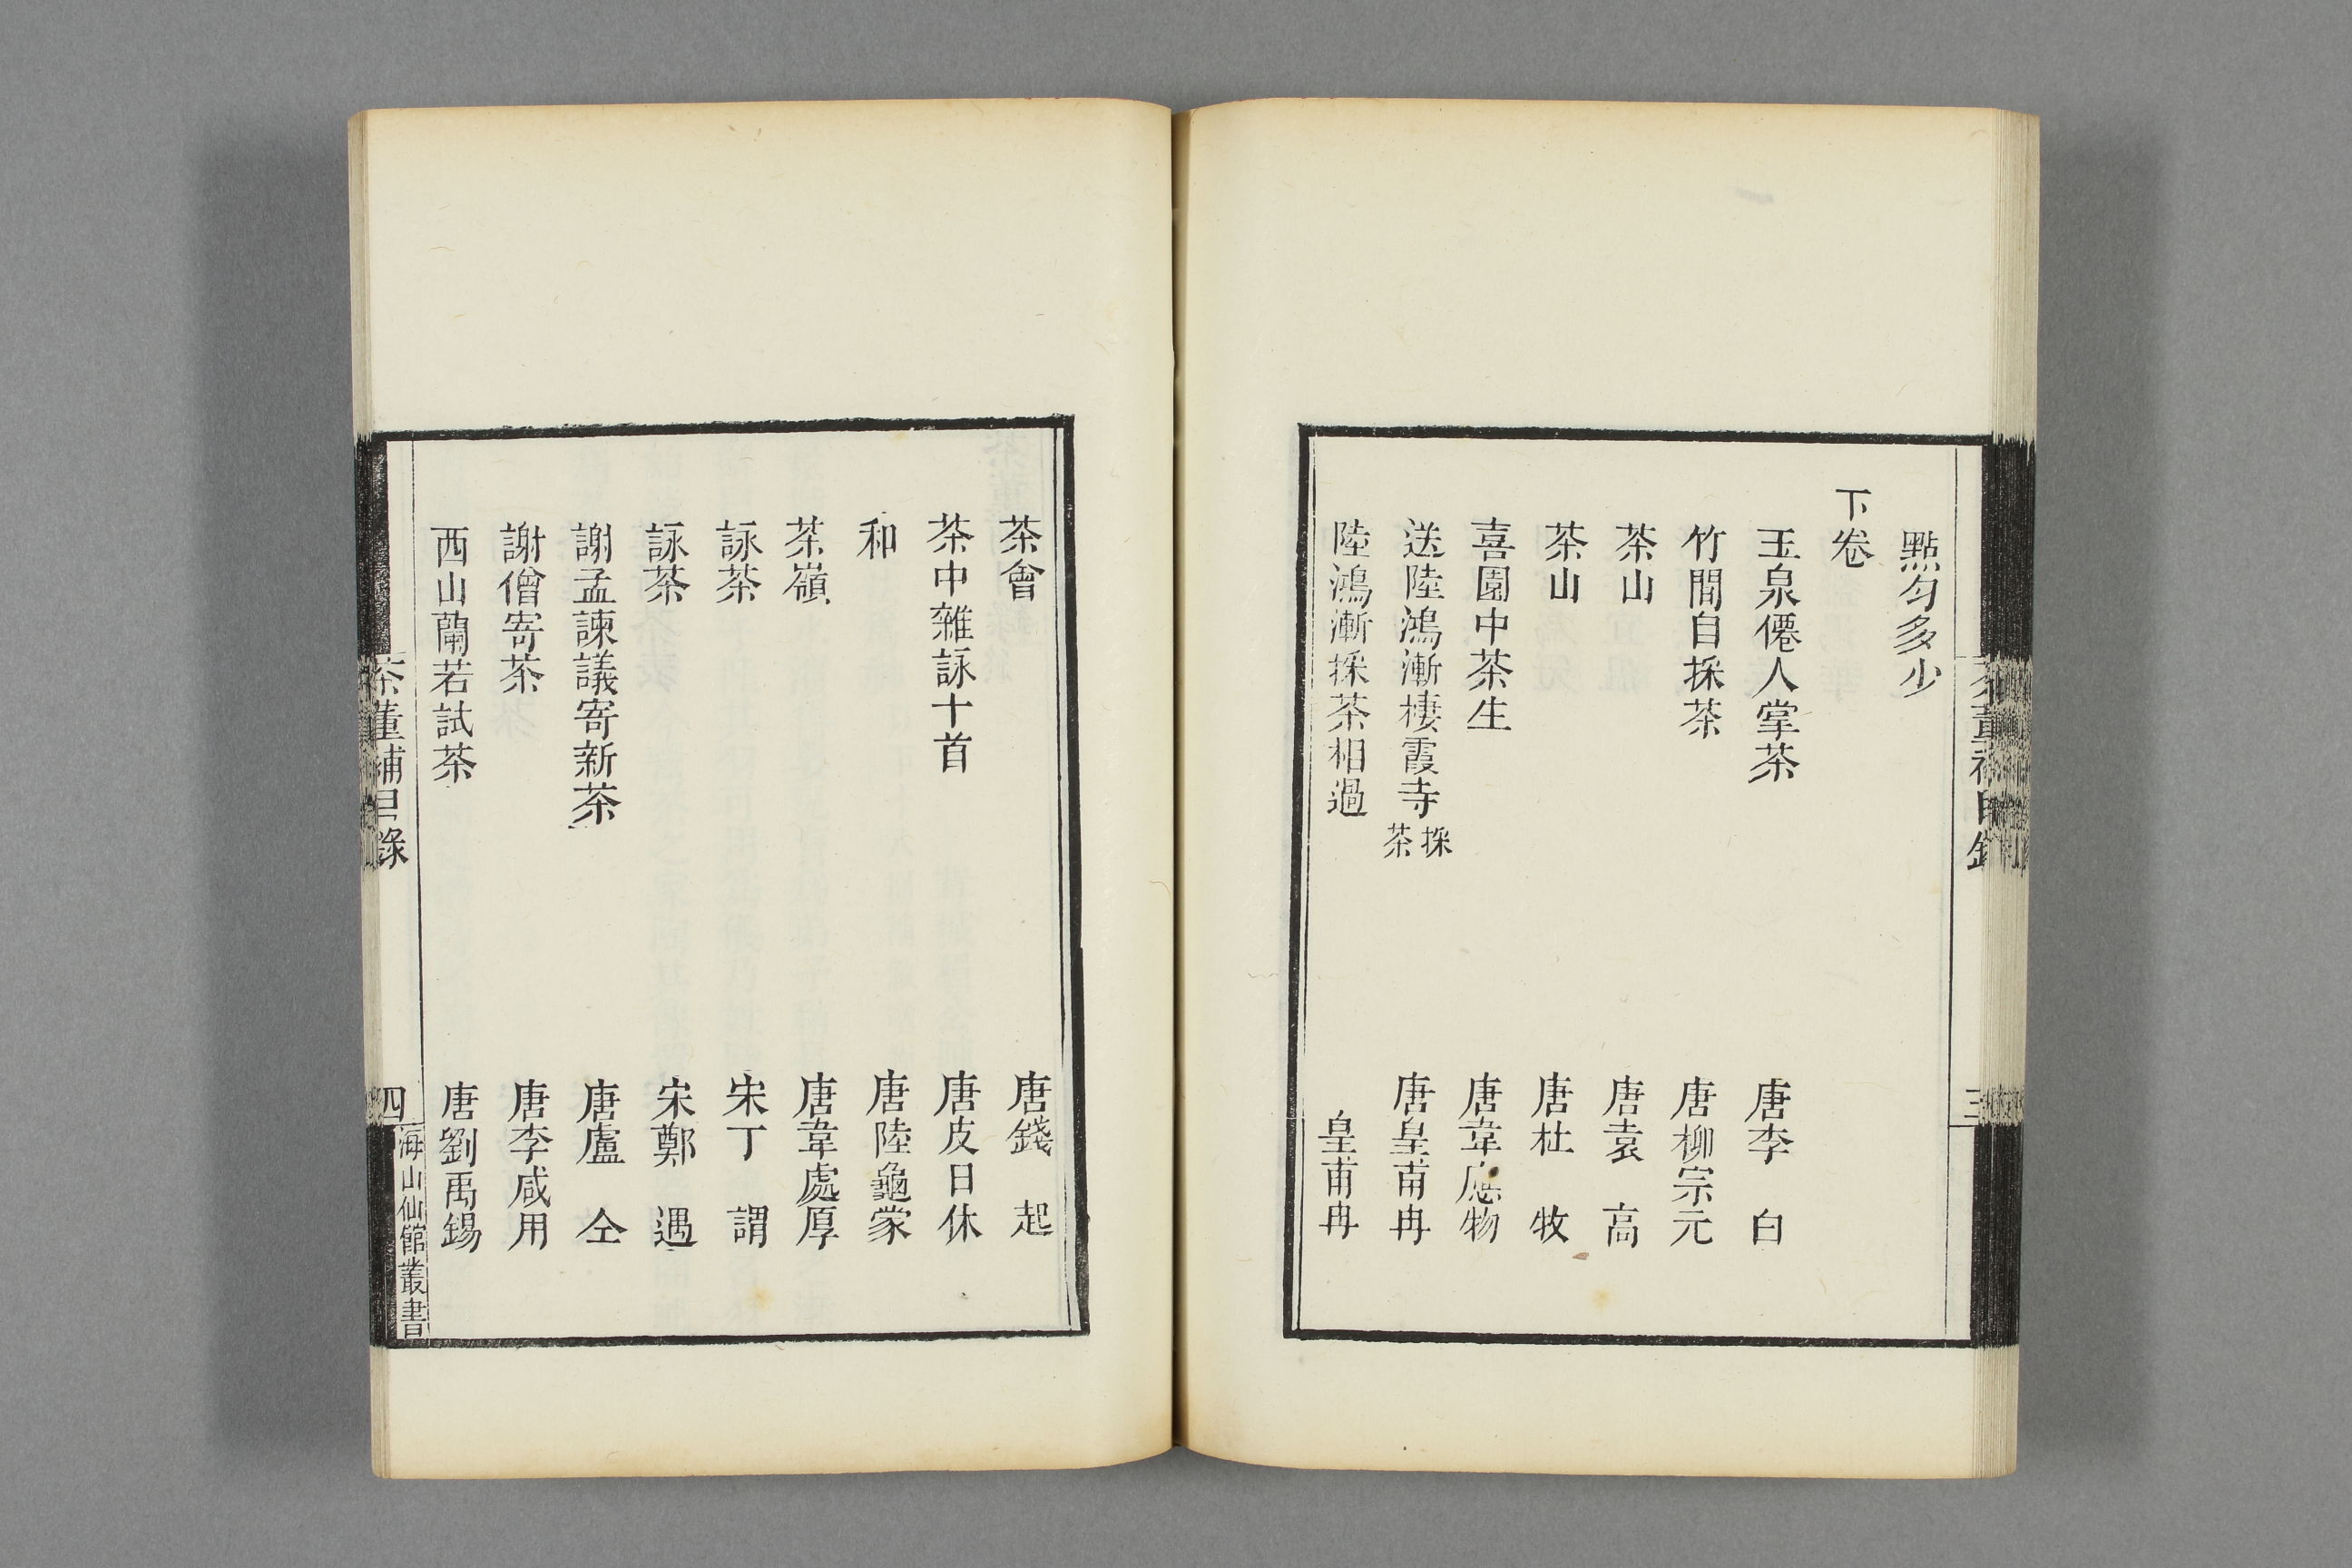 點勻多少
下卷
玉泉僊人掌茶 唐李 白
竹間自採茶 唐柳宗元
茶山 唐袁 高
茶山 唐杜 牧
喜園中茶生 唐韋應物
送陸鴻漸棲霞寺採茶 唐皇甫冉
陸鴻漸採茶相過 皇甫冉
茶會 唐錢 起
茶中雜詠十首 唐皮日休
和 唐陸龜蒙
茶嶺 唐韋處厚
詠茶 宋丁 謂
詠茶 宋鄭 遇
謝孟諫議寄新茶 唐盧 仝
謝僧寄茶 唐李咸用
西山蘭若試茶 唐劉禹錫
茶董補目錄 四 海山仙館叢書